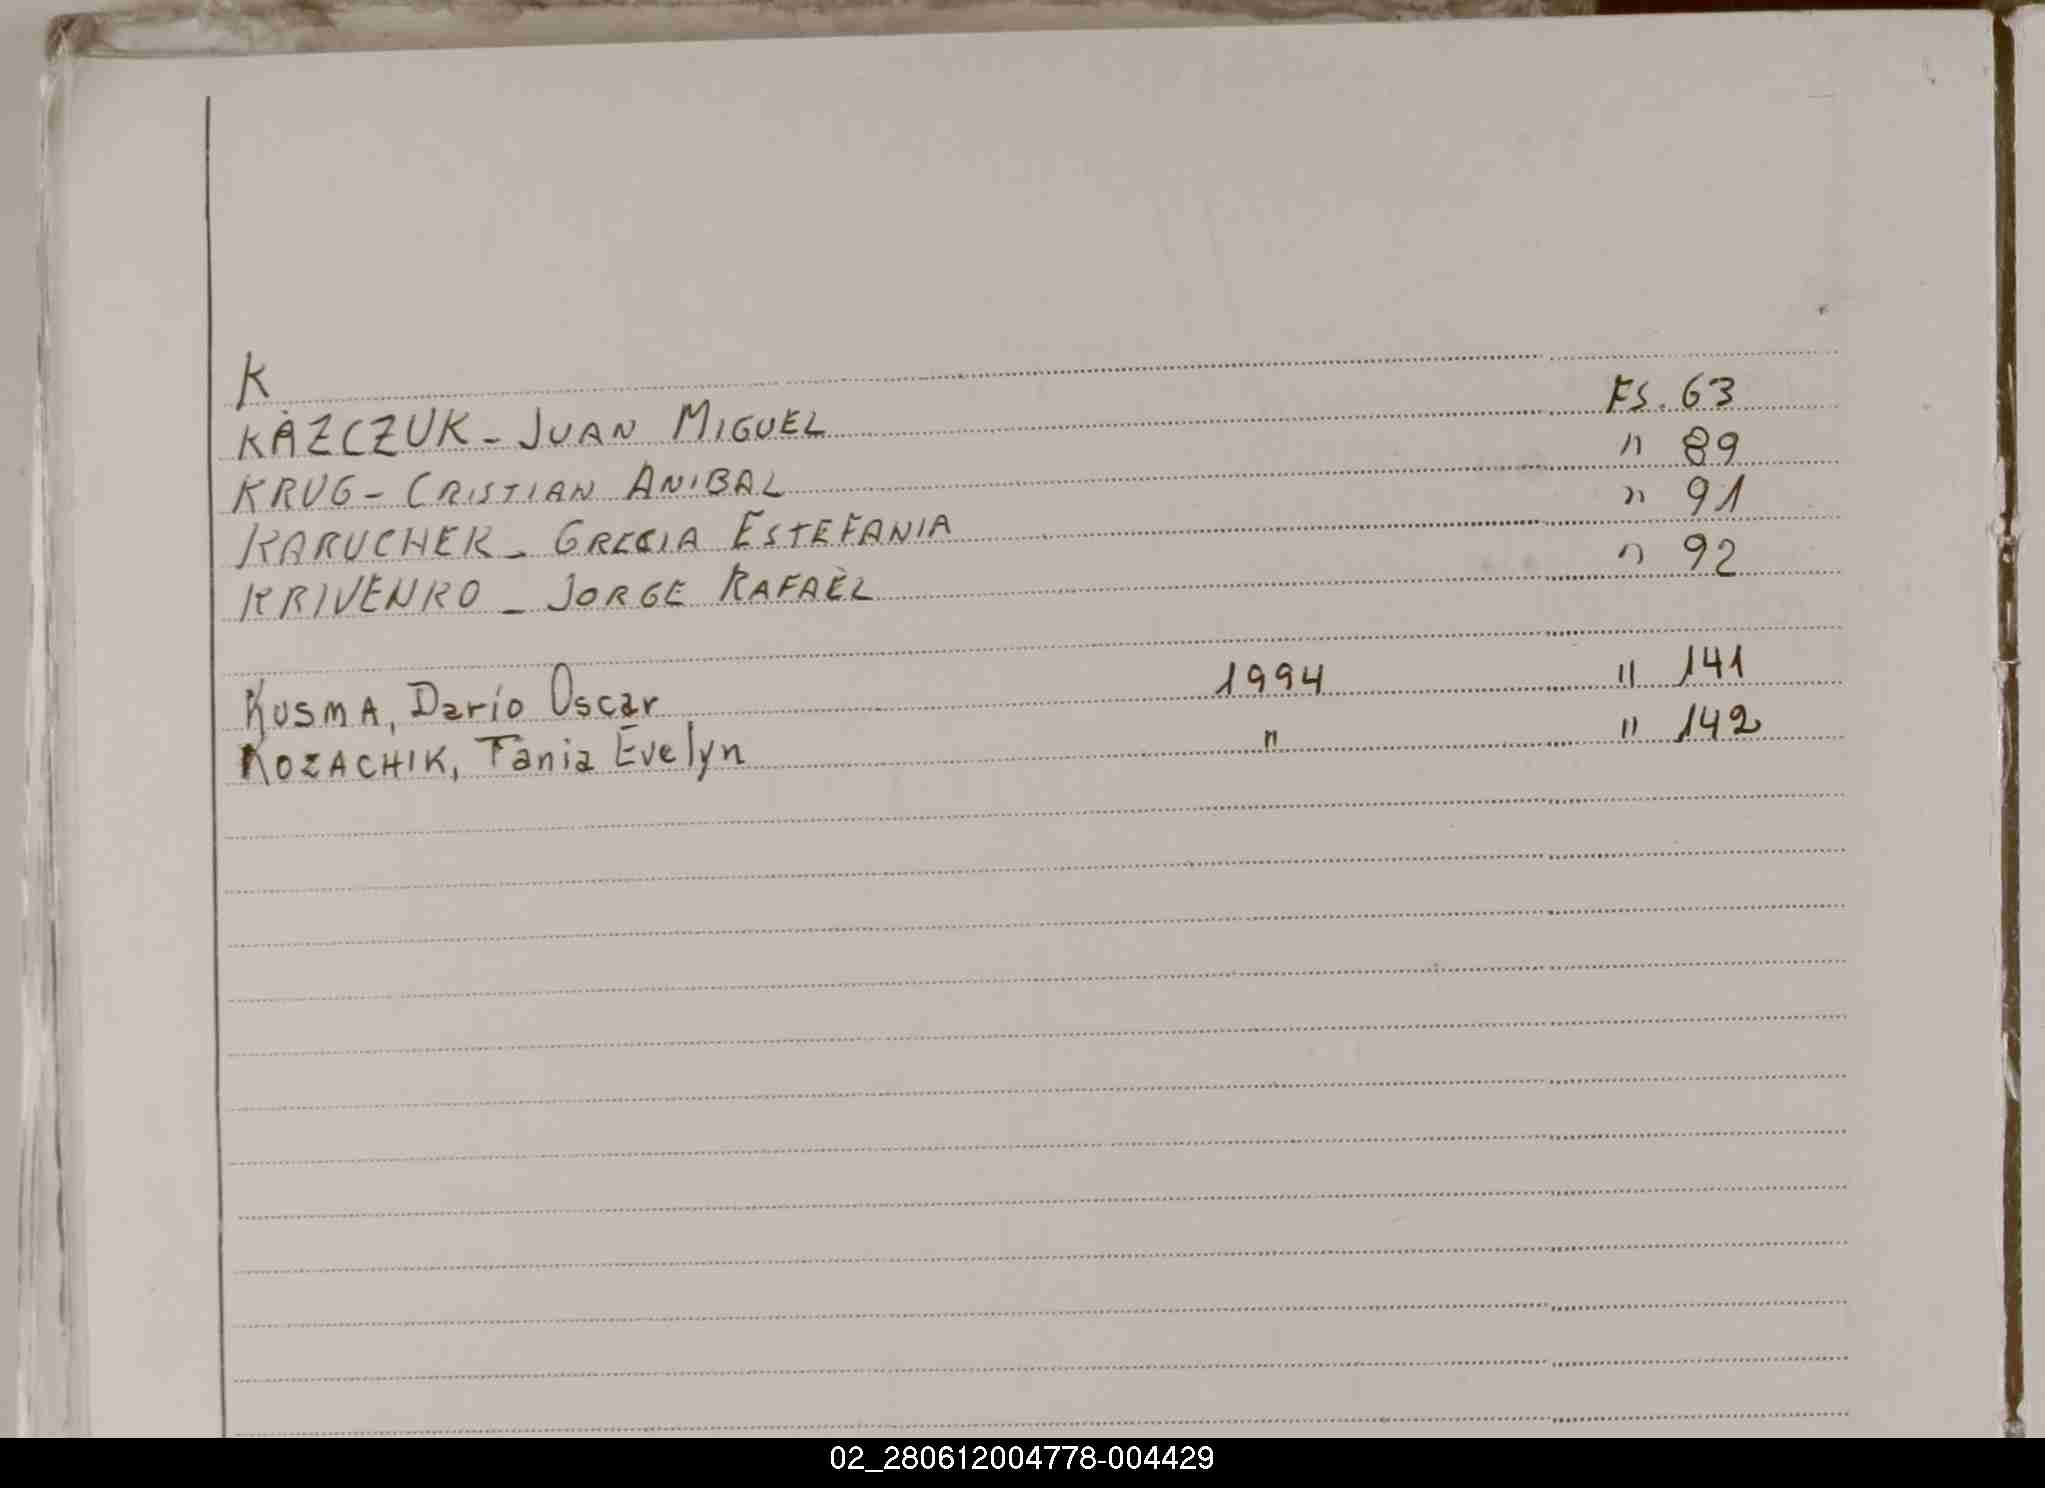 K
KAZCZUK - JUAN MIGUEL FS. 63
KRUG - CRISTIAN ANIBAL " 89
KARUCHEK - GRECIA ESTEFANIA " 91
KRIVENKO - JORGE RAFAEL " 92
KUSMA, Darío Oscar 1994 " 141
KOZACHIK, Tania Evelyn " " 142
02_280612004778-004429